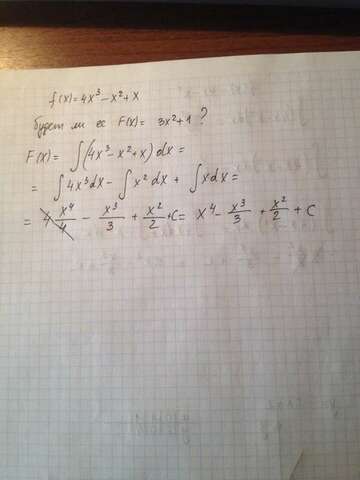 f(x)=4x³-x²+x
будет ли ее F(x)= 3x²+1 ?
F(x)= ∫(4x³-x²+x)dx=
= ∫4x³dx-∫x²dx + ∫xdx=
= 4 x⁴/4 - x³/3 + x²/2 +C= x⁴- x³/3 + x²/2 + C